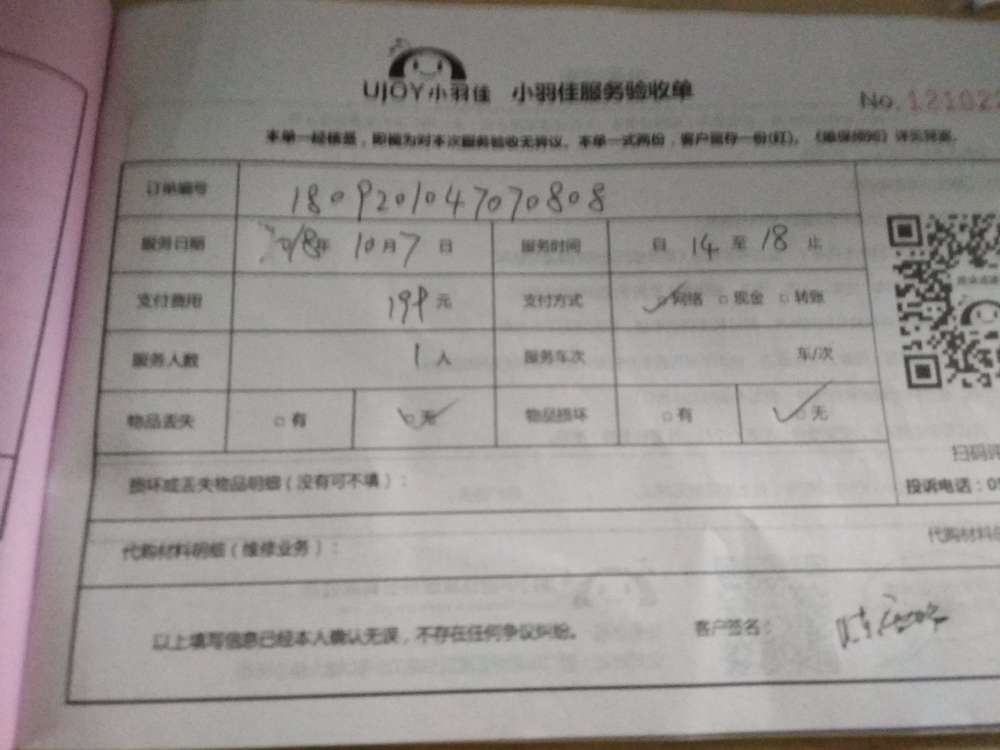 UJOY小羽佳 小羽佳服务验收单
No.121022
本单一经核签，即视为对本次服务验收无异议。本单一式两份，客户留存一份(红)。《维保须知》详见背面。
订单编号 1809201047070808
服务日期 2018年 10月7日 服务时间 自 14 至 18 止
支付费用 199元 支付方式 网络 现金 转账
服务人数 1人 服务车次 车/次
物品丢失 有 无 物品损坏 有 无
扫码评
损坏或丢失物品明细（没有可不填）：
投诉电话：05
代购材料明细（维修业务）： 代购材料
以上填写信息已经本人确认无误，不存在任何争议纠纷。 客户签名：